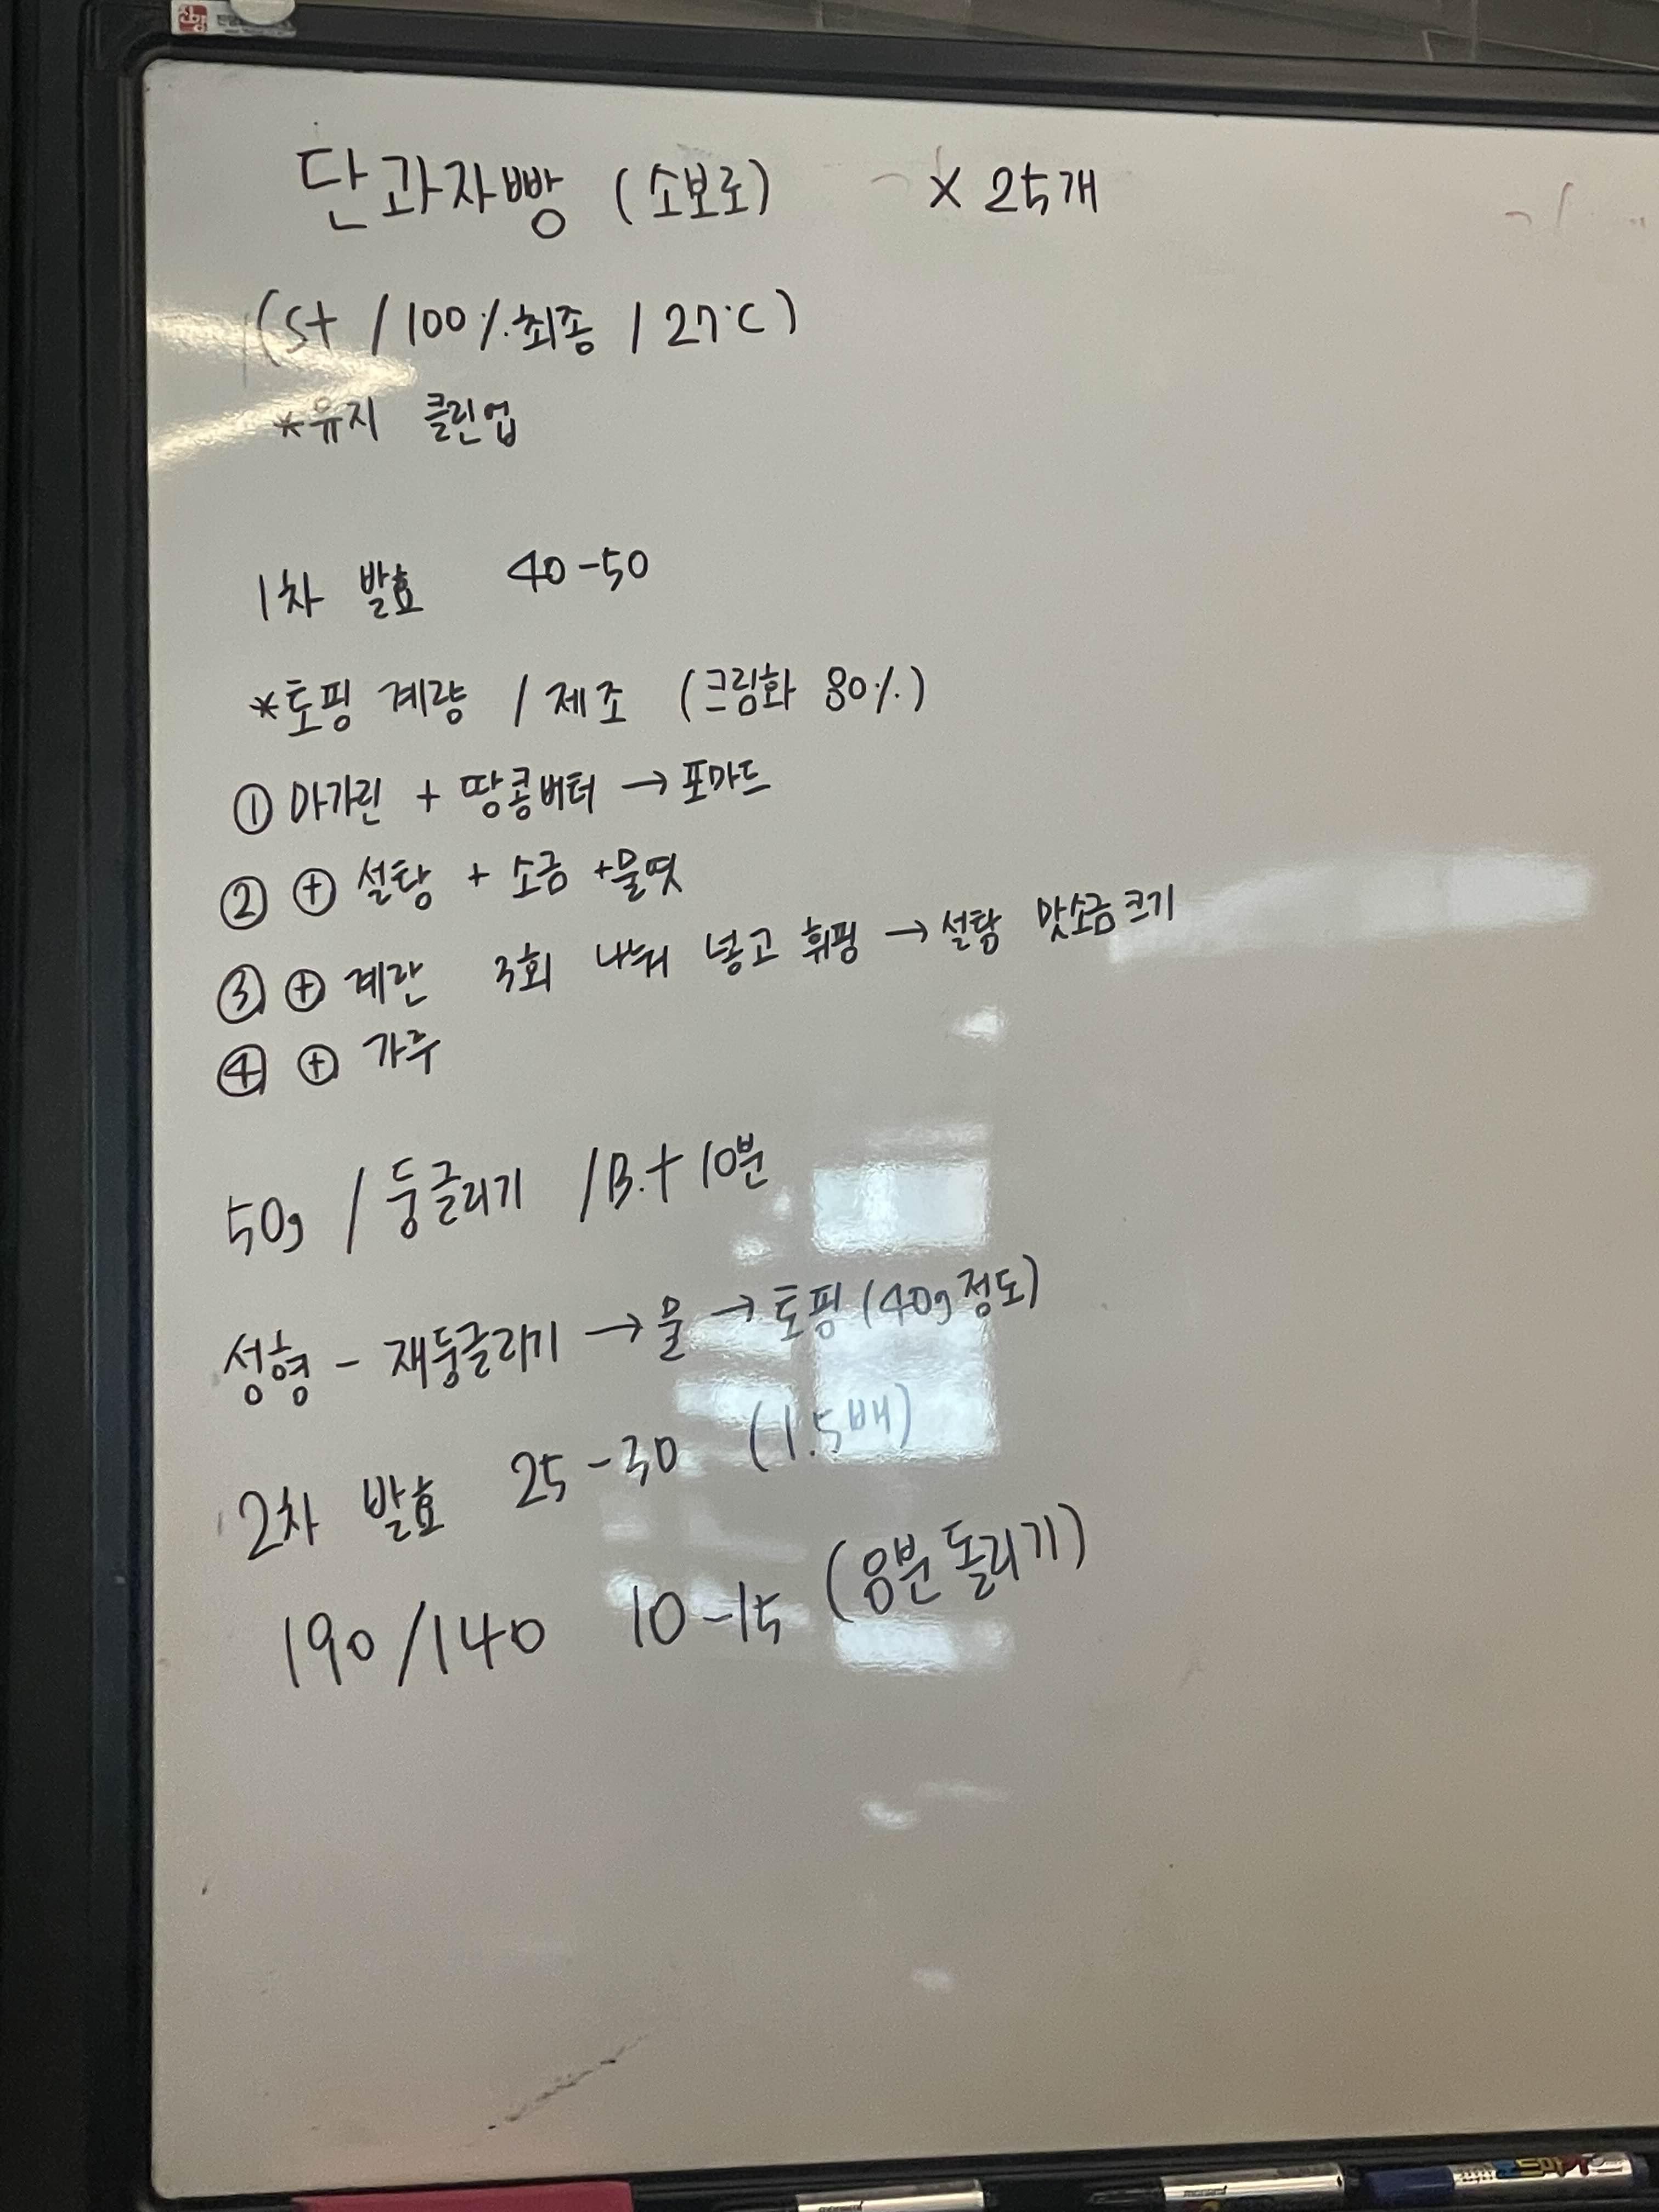 단과자빵 (소보로) × 25개
(St / 100% 최종 / 27°C)
*유지 클린업
1차 발효 40-50
*토핑 계량 / 제조 (크림화 80%)
① 마가린 + 땅콩버터 → 포마드
② ⊕ 설탕 + 소금 + 물엿
③ ⊕ 계란 3회 나눠 넣고 휘핑 → 설탕 맛소금 크기
④ ⊕ 가루
50g / 둥글리기 / B.t 10분
성형 - 재둥글리기 → 물 → 토핑 (40g 정도)
2차 발효 25-30 (1.5배)
190/140 10-15 (8분 돌리기)